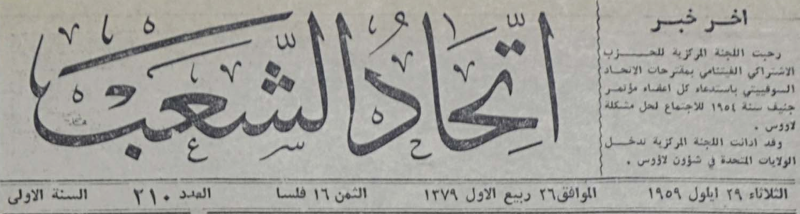 اتحاد الشعب
اخر خبر
رحبت اللجنة المركزية للحزب
الاشتراكي الفيتنامي بمقترحات الاتحاد
السوفييتي باستدعاء كل اعضاء مؤتمر
جنيف سنة ١٩٥٤ للاجتماع لحل مشكلة
لاووس .
وقد ادانت اللجنة المركزية تدخل
الولايات المتحدة في شؤون لاؤوس .
الثلاثاء ٢٩ ايلول ١٩٥٩ الموافق ٢٦ ربيع الاول ١٣٧٩ الثمن ١٦ فلسا العدد ٢١٠ السنة الاولى